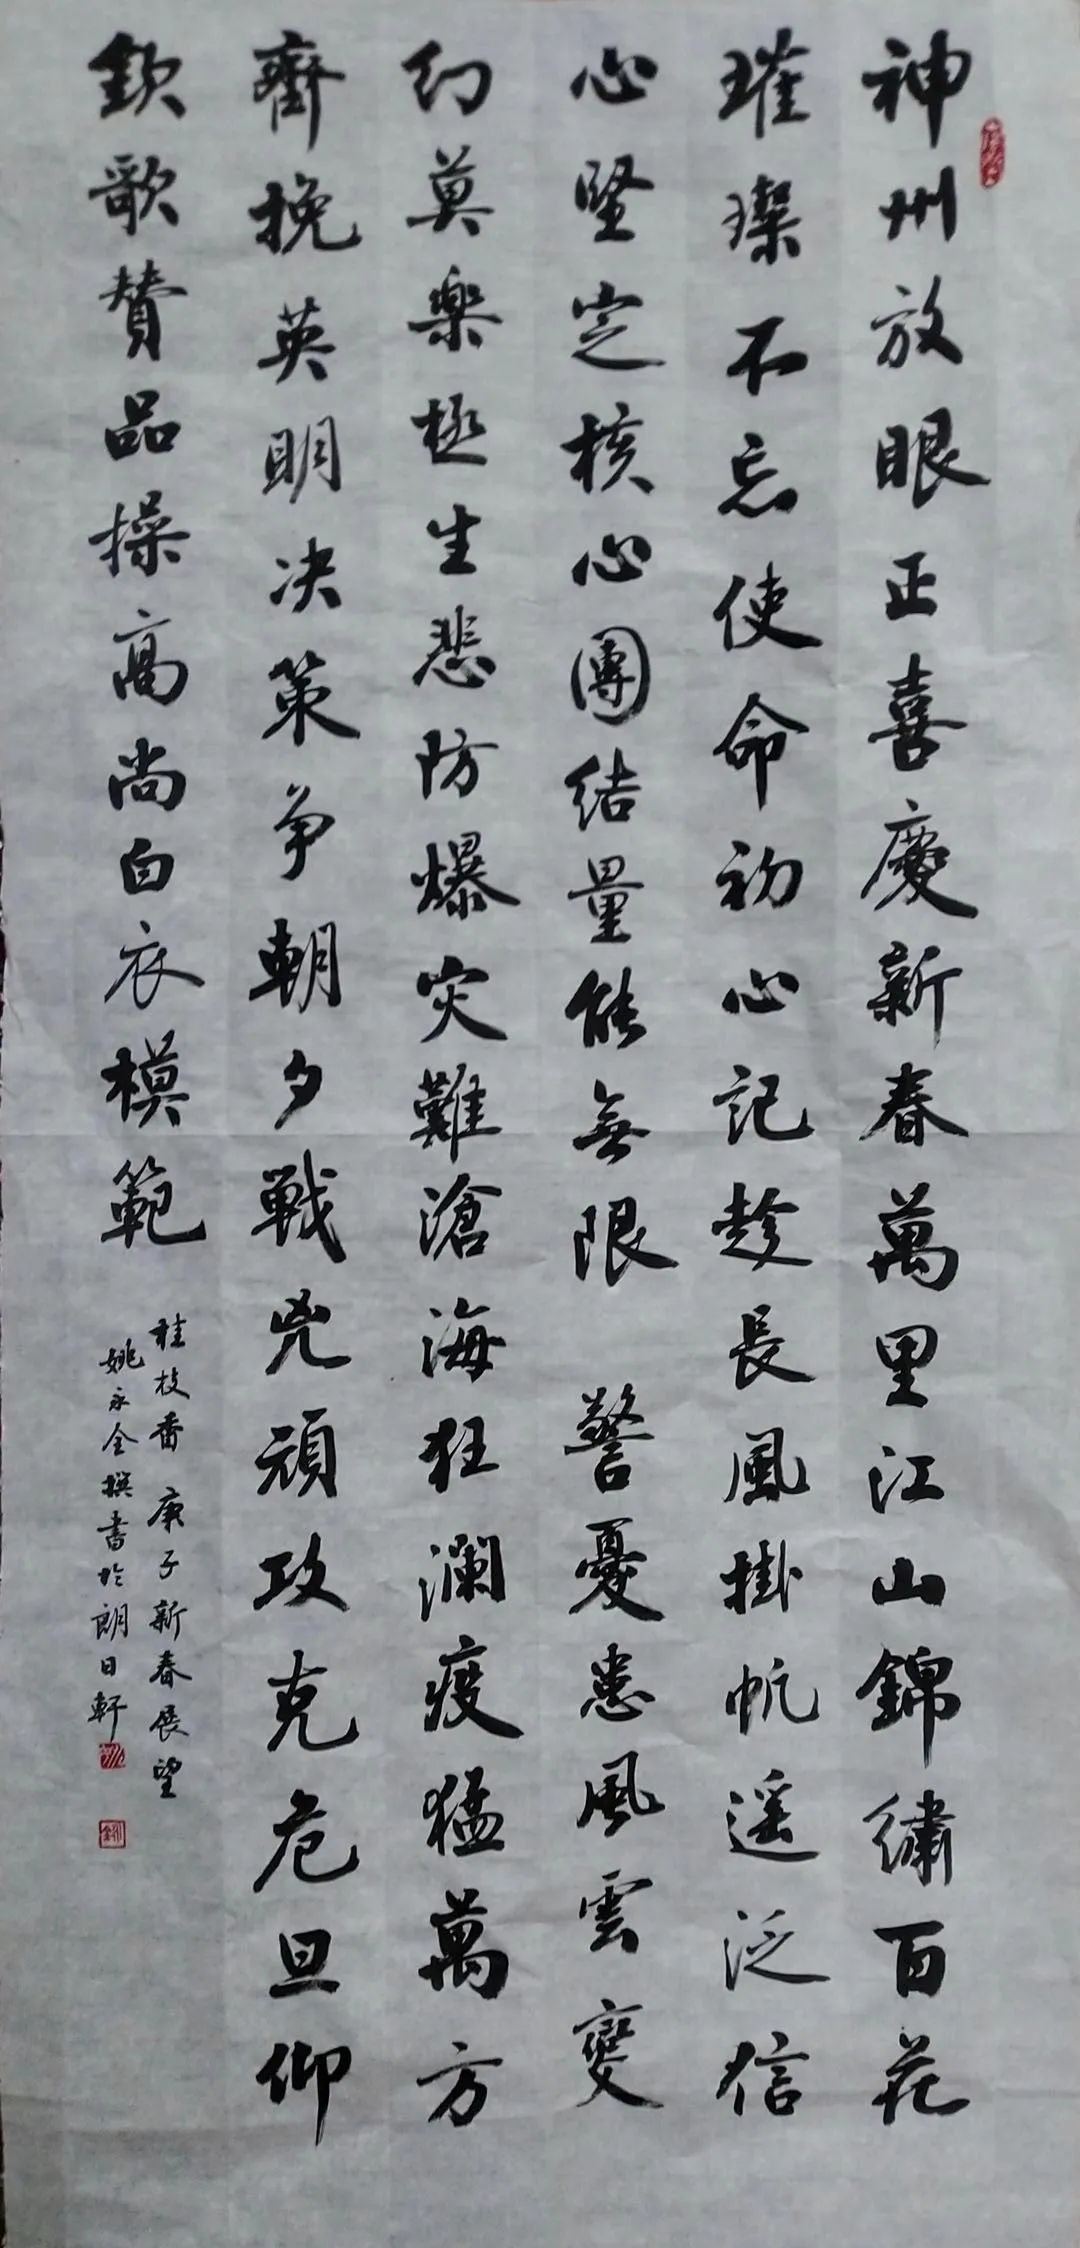 神州放眼正喜慶新春萬里江山錦繡百花
璀璨不忘使命初心記趁長風掛帆遥泛信
心堅定核心團结量能無限 警憂患風雲變
幻莫樂極生悲防爆灾難滄海狂瀾疫猛萬方
齊挽英明决策争朝夕戰兇頑攻克危旦仰
欽歌贊品操高尚白衣模範
桂枝香 庚子新春展望
姚永全撰書於朗日軒